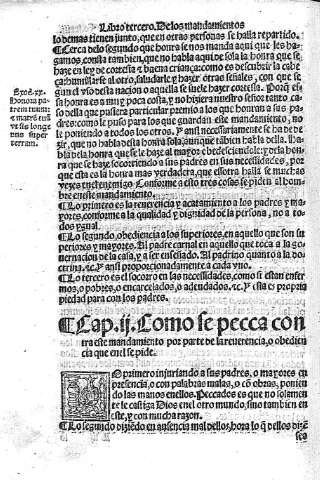 Libro tercero. De los mandamientos
lo demas tienen junto, que en otras personas se halla repartido.
¶ Cerca delo segundo que honra se nos manda aqui que les ha-
gamos, consta tambien, que no habla aqui de sola la honra que se
haze en ley de cortesia y buena criança: como es descubrir la cabe
ça, humillarse al otro, saludarle y hazer otras señales, con que se
gun el vso desta nacion o aquella se suele hazer cortesia. Porq̃ es
sa honra es a muy poca costa, y no hiziera nuestro señor tanto ca-
so della que pusiera particular premio a los que honran a sus pa-
dres: como le puso para los que guardan este mandamiento, no
le poniendo a todos los otros. Y ansi necessariamente se ha de de
zir, que no habla desta honra sola, aunque tãbien habla della. Ha-
bla dela honra que se le haze al mayor obedesciendole: y dela hon
ra que se haze socorriendo a sus padres en sus necessidades, por
que esta es la honra mas verdadera, que essotra halla se muchas
vezes en
Conforme a esto tres cosas se piden al hom-
bre en este mandamiento.
¶ Lo primero es la reuerencia y acatamiento a los padres y ma-
yores, conforme a la qualidad y dignidad de la persona, no a to-
dos ygual.
¶ Lo segundo, obediencia a los superiores, en aquello que son su
periores y mayores. Al padre carnal en aquello que toca a la go-
uernacion de la casa, y a ser enseñado. Al padrino quanto a la do-
ctrina. ⁊c. Y ansi proporcionadamente a cada vno.
¶ Lo tercero es el socorro en las necessidades, como si estan enfer
mos, o pobres, o encarcelados, o adeudados. ⁊c. Y esta es propria
piedad para con los padres.
Exo. xx.
Honora pa
trem tuum
⁊ matrẽ tuã
vt sis longe
uus super
terram.
¶ Cap. ij. Como se pecca con
tra este mandamiento por parte de la reuerencia, o obedien
cia que en el se pide.
LO primero injuriando a sus padres, o mayores en
presencia, o con palabras malas, o cõ obras, ponien
do las manos enellos. Peccados es que no solamen
te le castiga Dios en el otro mundo, sino tambien en
este, y con mucha razon.
¶ Lo segundo diziẽdo en ausencia mal dellos, hora lo q̃ dellos dizẽ
sea